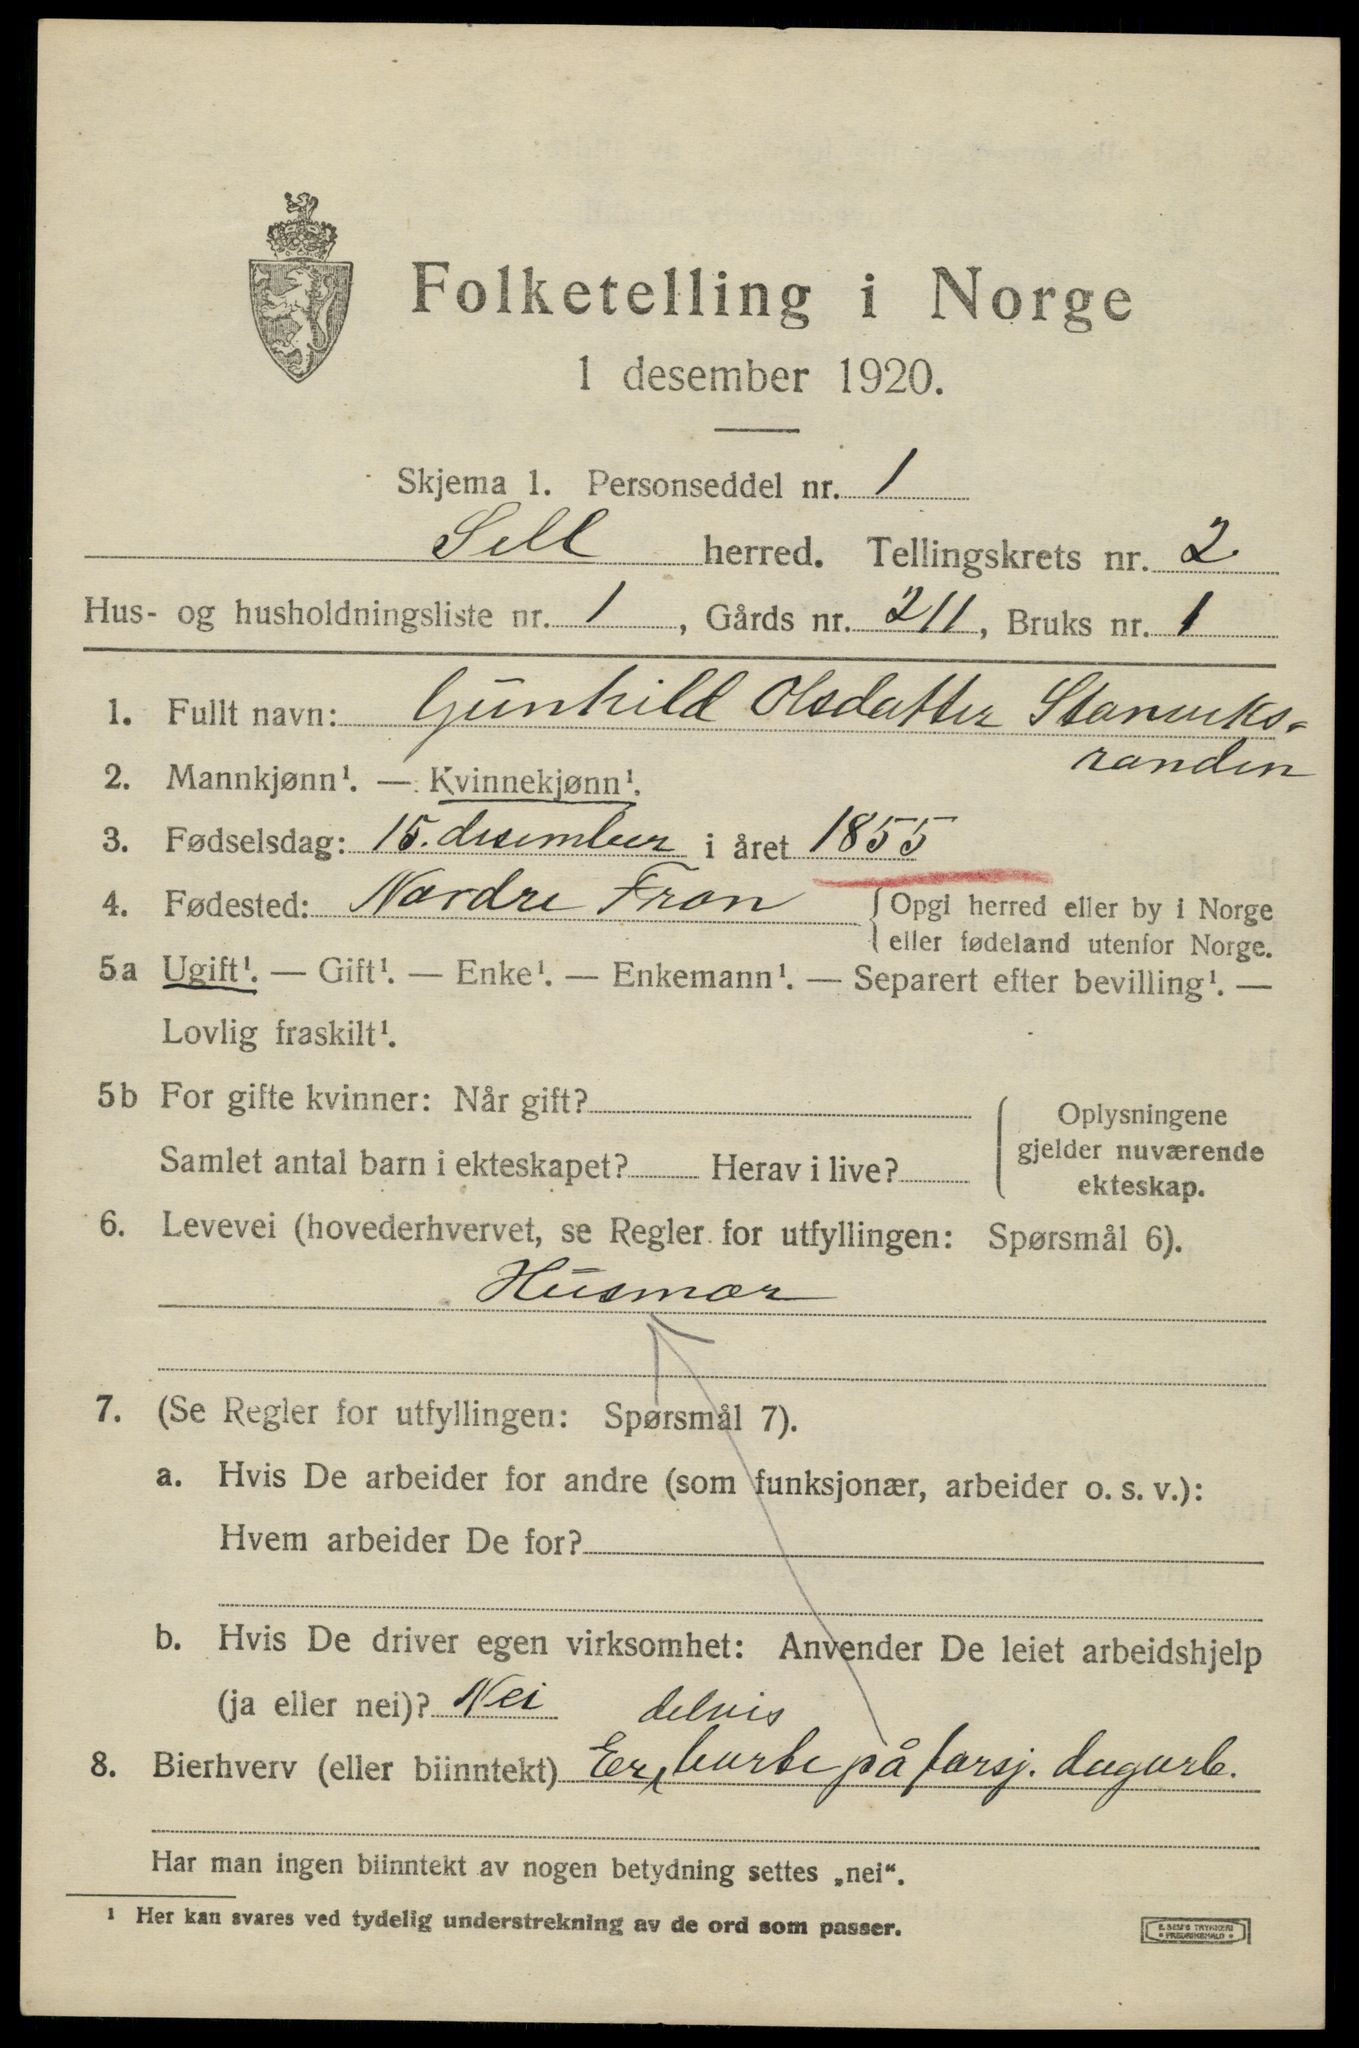 Folketelling i Norge
1 desember 1920.
Skjema 1. Personseddel nr. 1
Sell herred. Tellingskrets nr. 2
Hus- og husholdningsliste nr. 1, Gårds nr. 211, Bruks nr. 1
1. Fullt navn: Gunhild Olsdatter
randen
2. Mannkjønn¹. — Kvinnekjønn¹.
3. Fødselsdag: 15. desember i året 1855
4. Fødested: Nordre Fron {Opgi herred eller by i Norge
eller fødeland utenfor Norge.
5a Ugift¹. — Gift¹. — Enke¹. — Enkemann¹. — Separert efter bevilling¹. —
Lovlig fraskilt¹.
5b For gifte kvinner: Når gift?
Samlet antal barn i ekteskapet? Herav i live?
Oplysningene
gjelder nuværende
ekteskap.
6. Levevei (hovederhvervet, se Regler for utfyllingen: Spørsmål 6).
Husmor
7. (Se Regler for utfyllingen: Spørsmål 7).
a. Hvis De arbeider for andre (som funksjonær, arbeider o. s. v.):
Hvem arbeider De for?
b. Hvis De driver egen virksomhet: Anvender De leiet arbeidshjelp
(ja eller nei)? Nei
delvis
8. Bierhverv (eller biinntekt) Er borte på forsj. dagarb.
Har man ingen biinntekt av nogen betydning settes „nei“.
¹ Her kan svares ved tydelig understrekning av de ord som passer.
E. SEM'S TRYKKERI
• FREDRIKSHALD •